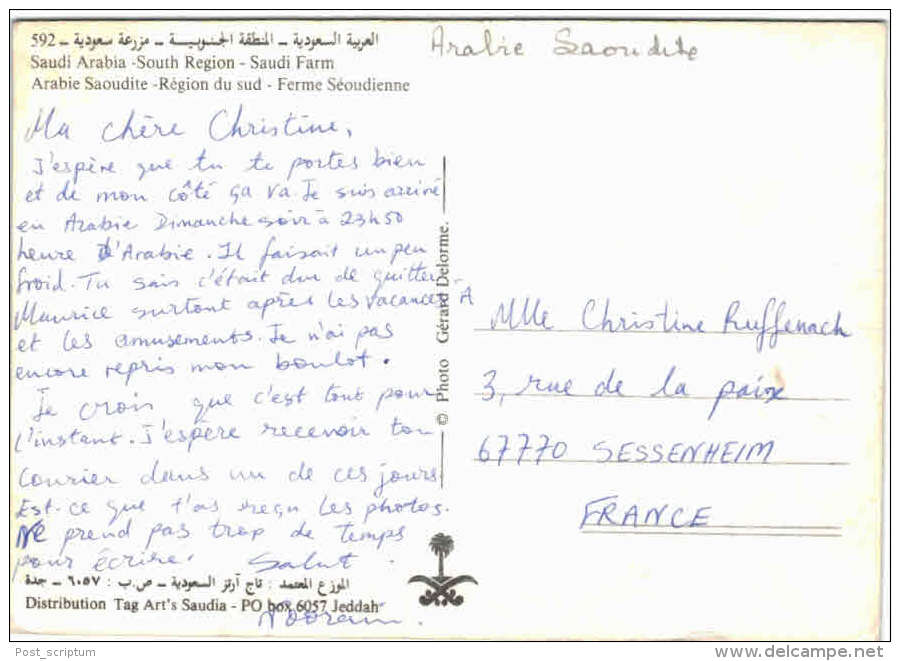 592 ــ العربية السعودية ــ المنطقة الجنوبيــة ــ مزرعة سعودية
Arabie Saoudite
Saudi Arabia -South Region - Saudi Farm
Arabie Saoudite -Région du sud - Ferme Séoudienne
Ma chère Christine,
J'espère que tu te portes bien
et de mon côté ça va. Je suis arrivé
en Arabie Dimanche soir à 23h50
heure d'Arabie. Il faisait un peu
froid. Tu sais c'était dur de quitter
Maurice surtout après les vacances
et les amusements. Je n'ai pas
encore repris mon boulot.
Je crois que c'est tout pour
l'instant. J'espère recevoir ton
courier dans un de ces jours
Est-ce que t'as reçu les photos.
Ne prend pas trop de temps
pour écrire. Salut.
الموزع المعتمد : تاج آرتز السعودية ــ ص.ب : ٦٠٥٧ ــ جدة
Distribution Tag Art's Saudia - PO box 6057 Jeddah
© Photo Gérard Delorme.
A
Mlle Christine Ruffenach
3, rue de la paix
67770 SESSENHEIM
FRANCE
Post_scriptum
delcampe.net